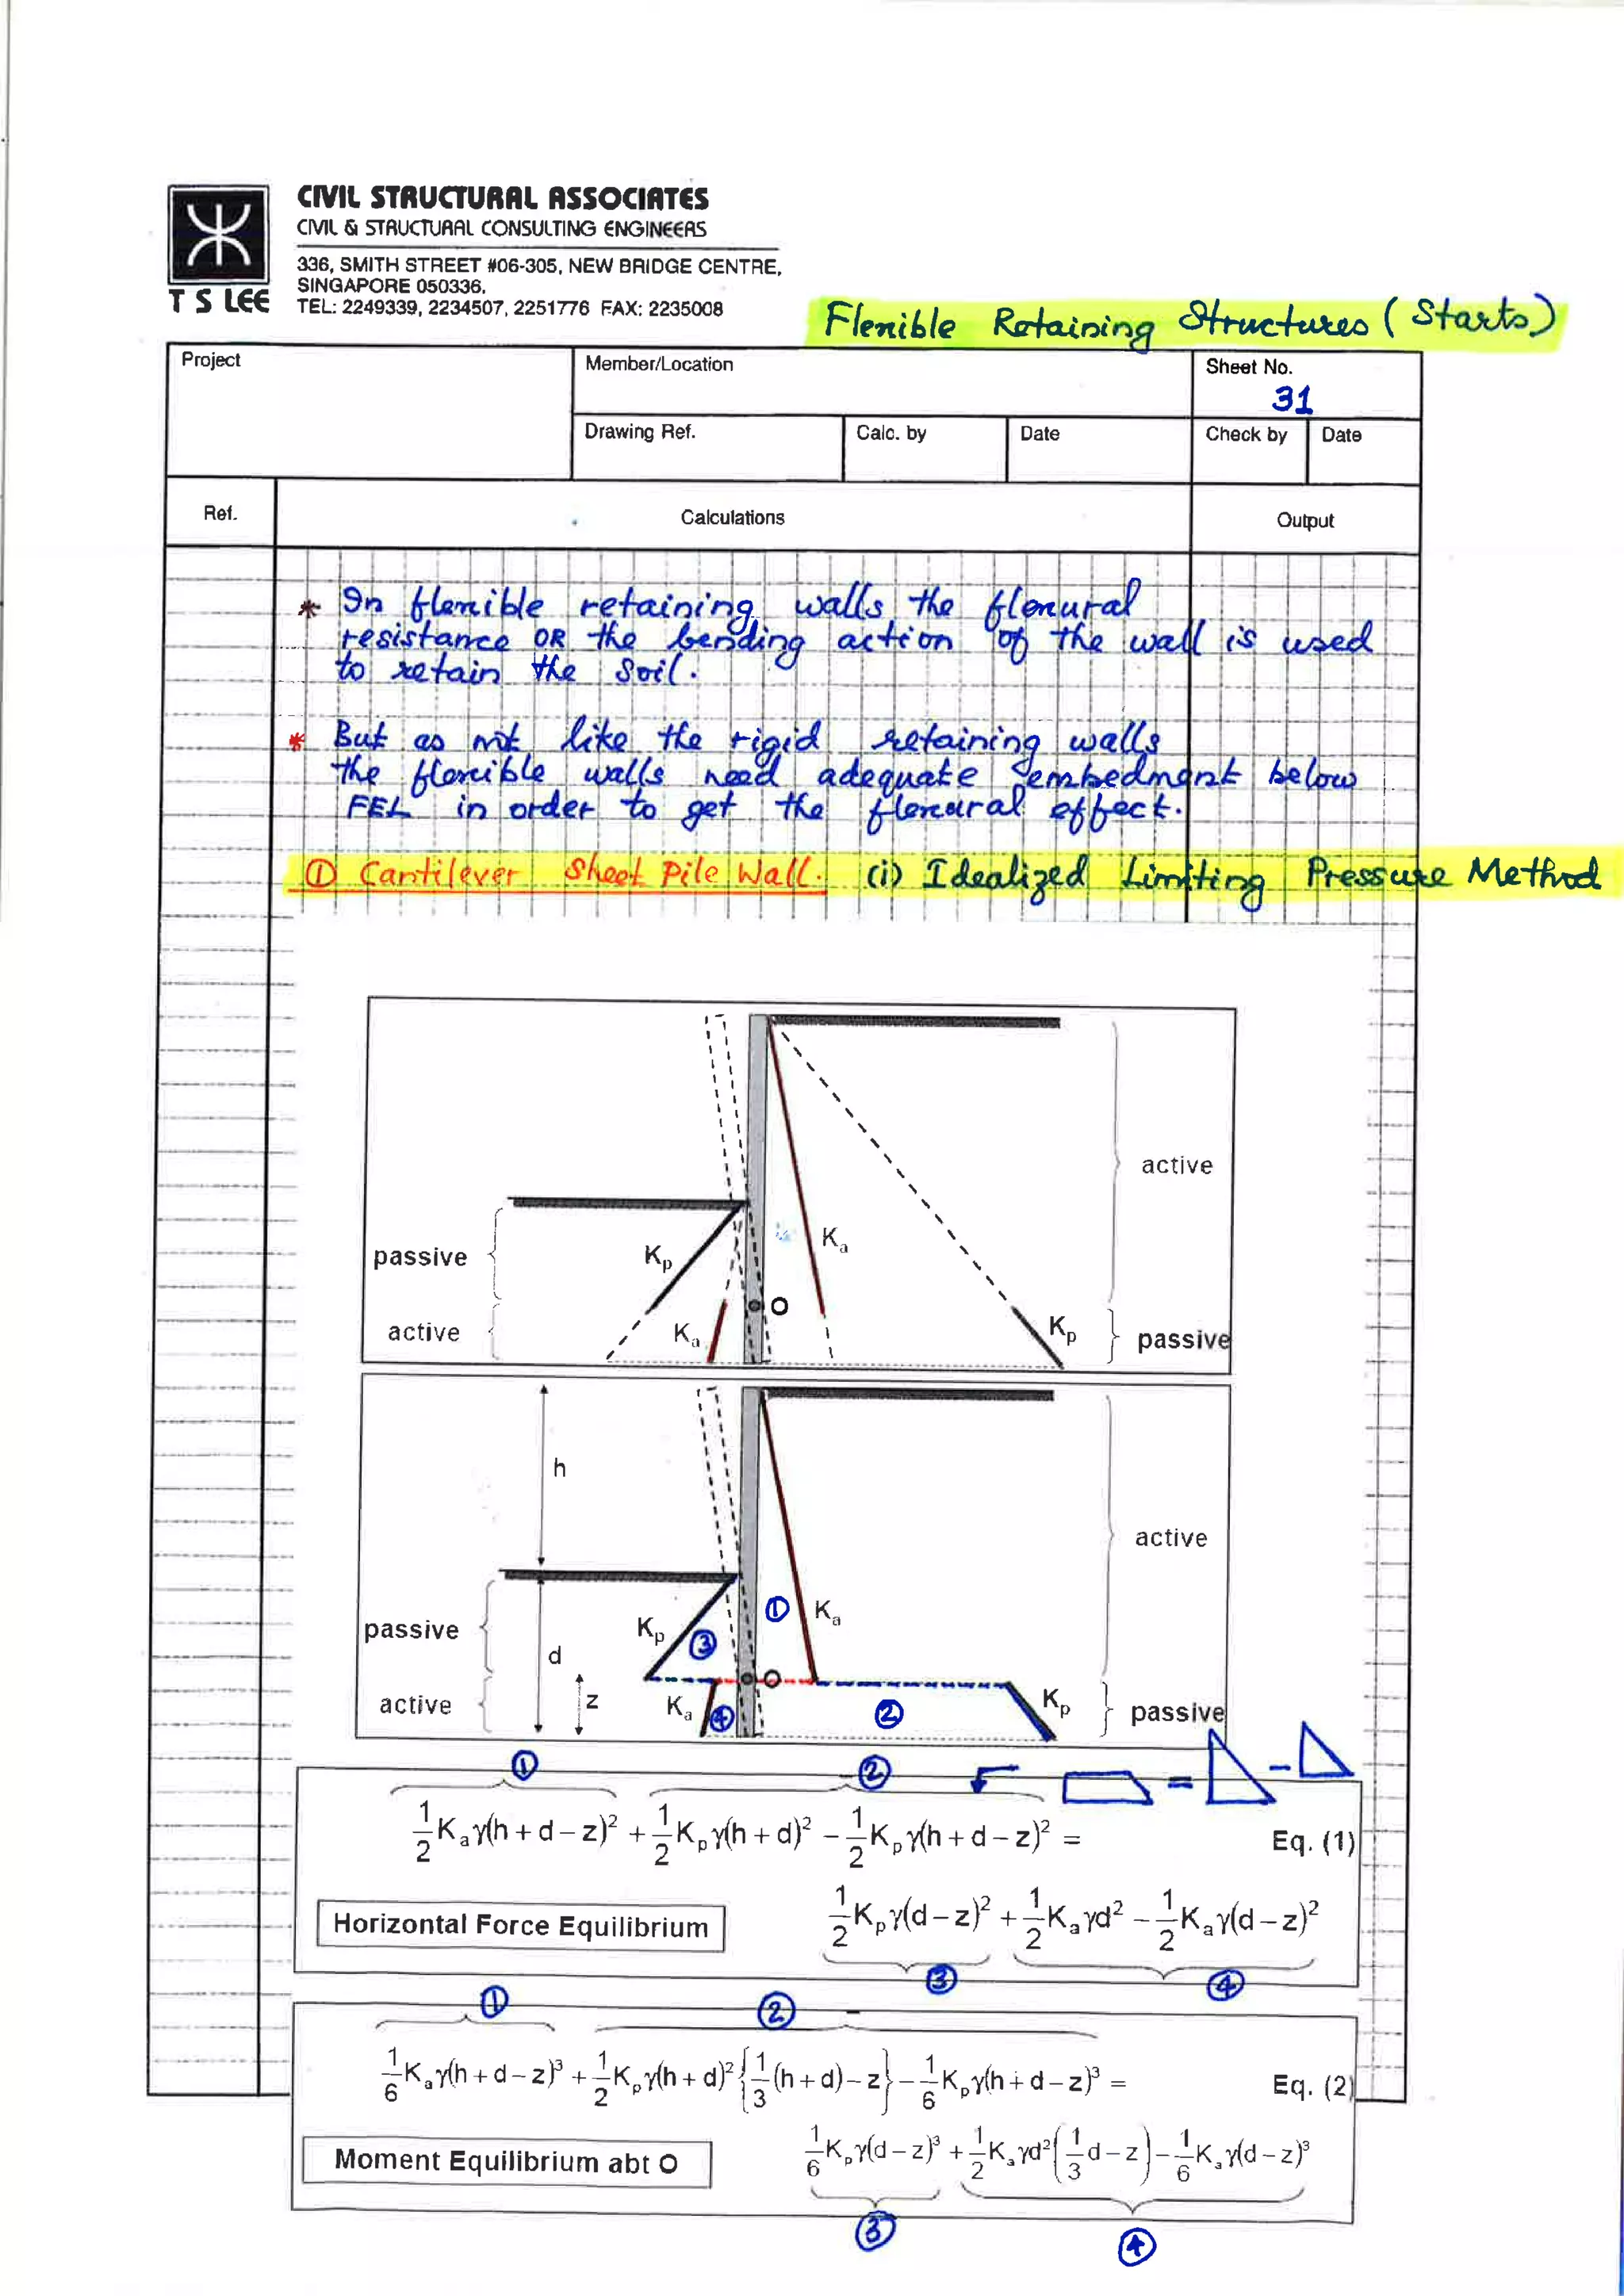 CIVIL STRUCTURAL ASSOCIATES
CIVIL & STRUCTURAL CONSULTING ENGINEERS
336, SMITH STREET #06-305, NEW BRIDGE CENTRE,
SINGAPORE 050336.
T S LEE
TEL: 2249339, 2234507, 2251776 FAX: 2235008
Flexible Retaining Structures (Starts)
Project
Member/Location
Sheet No.
31
Drawing Ref.
Calc. by
Date
Check by
Date
Ref.
Calculations
Output
* In flexible retaining walls the flexural
resistance OR the bending action of the wall is used
to retain the Soil.
* But as not like the rigid retaining walls
the flexible walls need adequate embedment below
FEL in order to get the flexural effect.
① Cantilever Sheet Pile Wall. (i) Idealized Limiting Pressure Method
active
passive
Kp
Ka
O
active
Ka
Kp
passive
h
active
passive
Kp
③
①
Ka
d
O
active
z
Ka
④
②
Kp
passive
① ② = -
½Kaγ(h + d – z)² + ½Kpγ(h + d)² – ½Kpγ(h + d – z)² = Eq. (1)
Horizontal Force Equilibrium
½Kpγ(d – z)² + ½Kaγd² – ½Kaγ(d – z)²
③ ④
① ②
1/6 Kaγ(h + d – z)³ + ½Kpγ(h + d)²{1/3(h + d) – z} – 1/6 Kpγ(h + d – z)³ = Eq. (2)
Moment Equilibrium abt O
1/6 Kpγ(d – z)³ + ½Kaγd²(1/3 d – z) – 1/6 Kaγ(d – z)³
③ ④